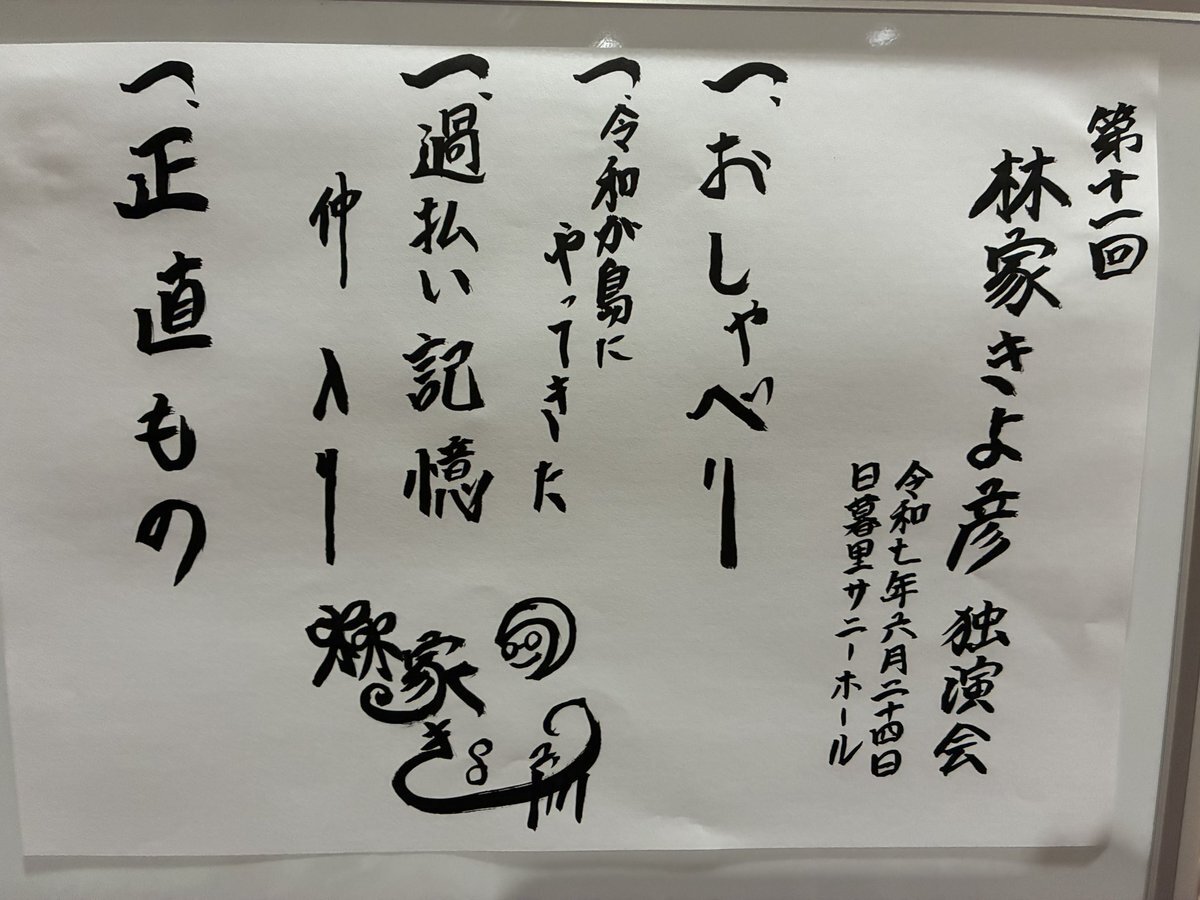 第十一回
林家きよ彦 独演会
令和七年六月二十四日
日暮里サニーホール
一、おしゃべり
一、令和が島に
やってきた
一、過払い記憶
仲入り
一、正直もの
林家きよ彦